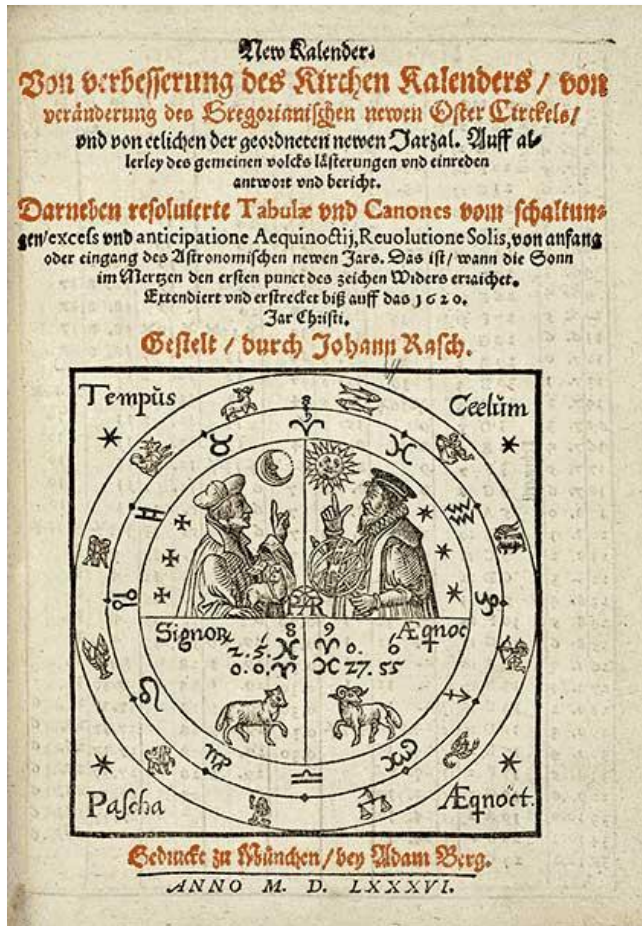 New Kalender.
Von verbesserung des Kirchen Kalenders / von
veränderung des Gregorianischen newen Oster Circkels /
vnd von etlichen der geordneten newen Jarzal. Auff al-
lerley des gemeinen volcks lästerungen vnd einreden
antwort vnd bericht.
Darneben resoluierte Tabulæ vnd Canones vom schaltun-
gen / excess vnd anticipatione Aequinoctij, Reuolutione Solis, von anfang
oder eingang des Astronomischen newen Jars. Das ist / wann die Sonn
im Mertzen den ersten punct des zeichen Widers erraichet.
Extendiert vnd erstrecket biß auff das 1620.
Jar Christi.
Gestelt / durch Johann Rasch.
Tempūs
Ceelūm
Signor
8 9
Æqnoc
2. 5. ♓ ♈ 0. 6
0. 0. ♈ ♓ 27. 55
Pascha
Æqnoct.
Gedruckt zu München / bey Adam Berg.
ANNO M. D. LXXXVI.